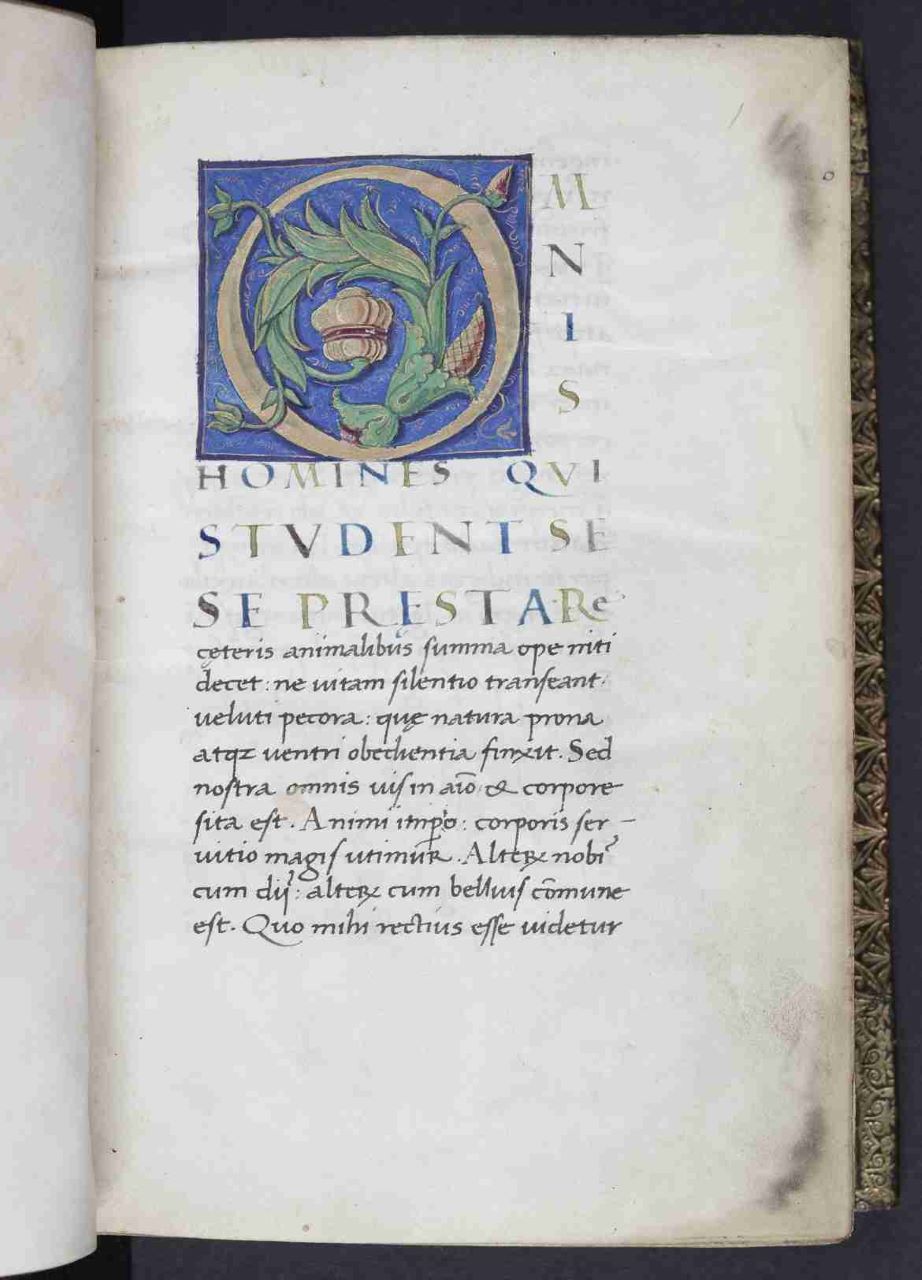 O
M
N
I
S
HOMINES QVI
STVDENT SE
SE PRESTARe
cęteris animalibus summa ope niti
decet: ne uitam silentio transeant.
ueluti pecora: quę natura prona
atqꝫ uentri obedientia finxit. Sed
nostra omnis uis in aĩo & corpore
sita est. Animi imꝑio: corporis ser-
uitio magis utimur. Alteꝝ nobis
cum dijs: alteꝝ cum belluis cõmune
est. Quo mihi rectius esse uidetur